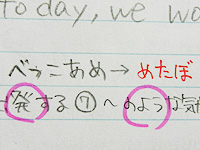 today, we wo
べっこあめ→めたぼ
発する⑦～のような気